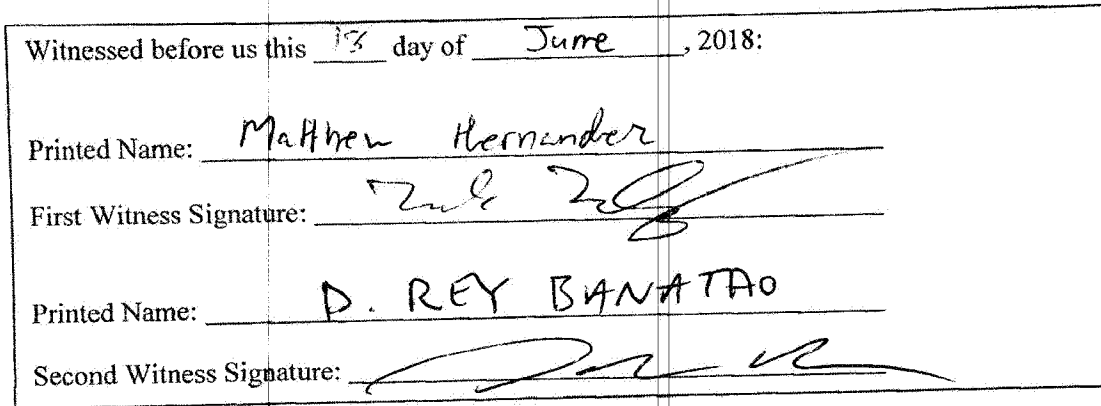 Witnessed before us this 13 day of June, 2018:
Printed Name: Matthew Hernandez
First Witness Signature:
Printed Name: D. REY BANATAO
Second Witness Signature: